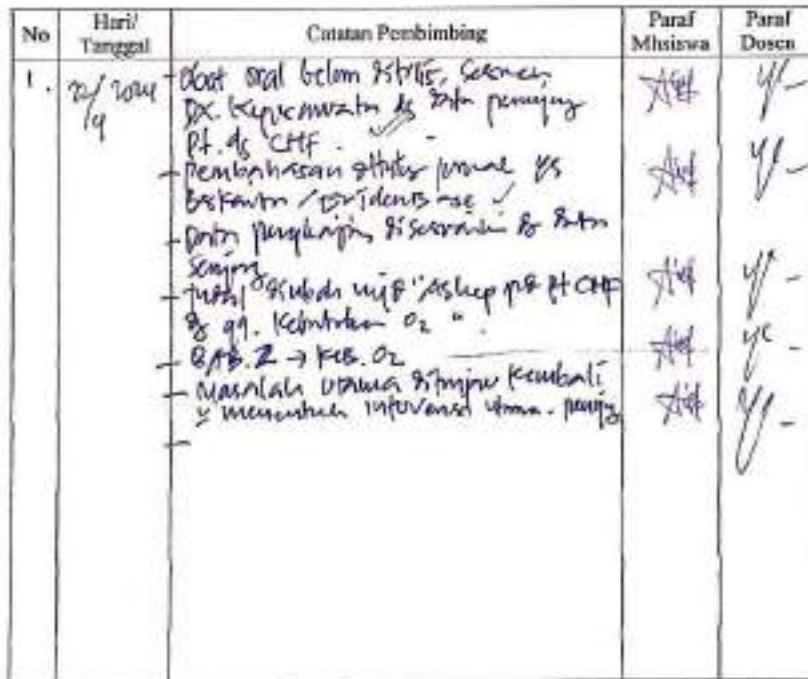 No Hari/ Tanggal Catatan Pembimbing Paraf Mhsiswa Paraf Dosen
1. 22/9 2024 - Obat oral belum ditulis, sesuaikan
Dx. Keperawatan dg data penunjang
Pt. dg CHF.
- Pembahasan ditulis jurnal yg
berkaitan / evidence base
- Data pengkajian disesuaikan dg data
senjang
- Judul diubah mjd "Askep pd pt CHF
dg gg. Kebutuhan O2".
- BAB.2 → Keb. O2
- Masalah utama ditinjau kembali
menentukan intervensi utama -